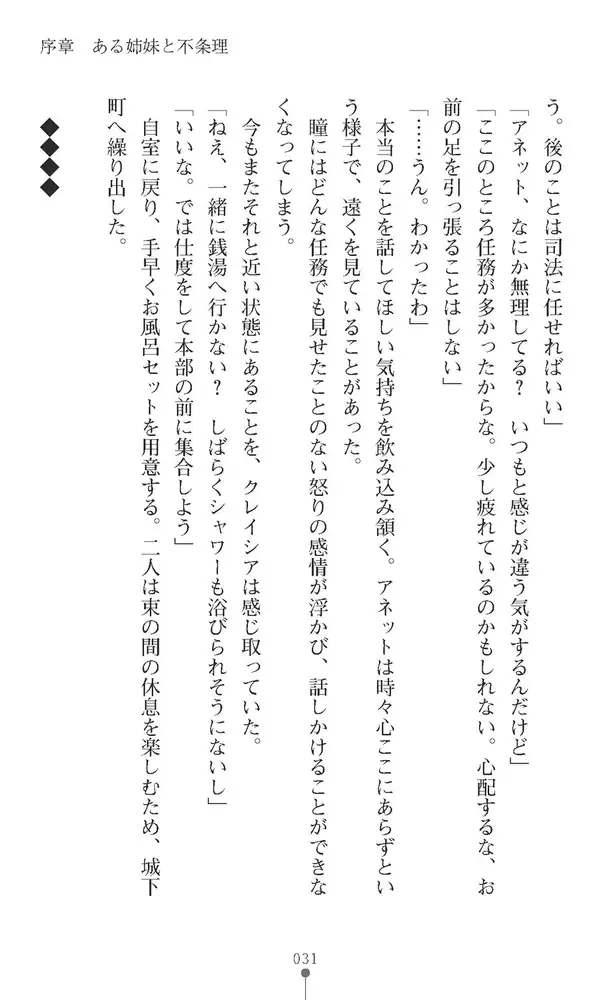 序章　ある姉妹と不条理
う。後のことは司法に任せればいい」
「アネット、なにか無理してる？　いつもと感じが違う気がするんだけど」
「ここのところ任務が多かったからな。少し疲れているのかもしれない。心配するな、お
前の足を引っ張ることはしない」
「……うん。わかったわ」
本当のことを話してほしい気持ちを飲み込み頷く。アネットは時々心ここにあらずとい
う様子で、遠くを見ていることがあった。
瞳にはどんな任務でも見せたことのない怒りの感情が浮かび、話しかけることができな
くなってしまう。
今もまたそれと近い状態にあることを、クレイシアは感じ取っていた。
「ねえ、一緒に銭湯へ行かない？　しばらくシャワーも浴びられそうにないし」
「いいな。では仕度をして本部の前に集合しよう」
自室に戻り、手早くお風呂セットを用意する。二人は束の間の休息を楽しむため、城下
町へ繰り出した。
◆◆◆◆
031